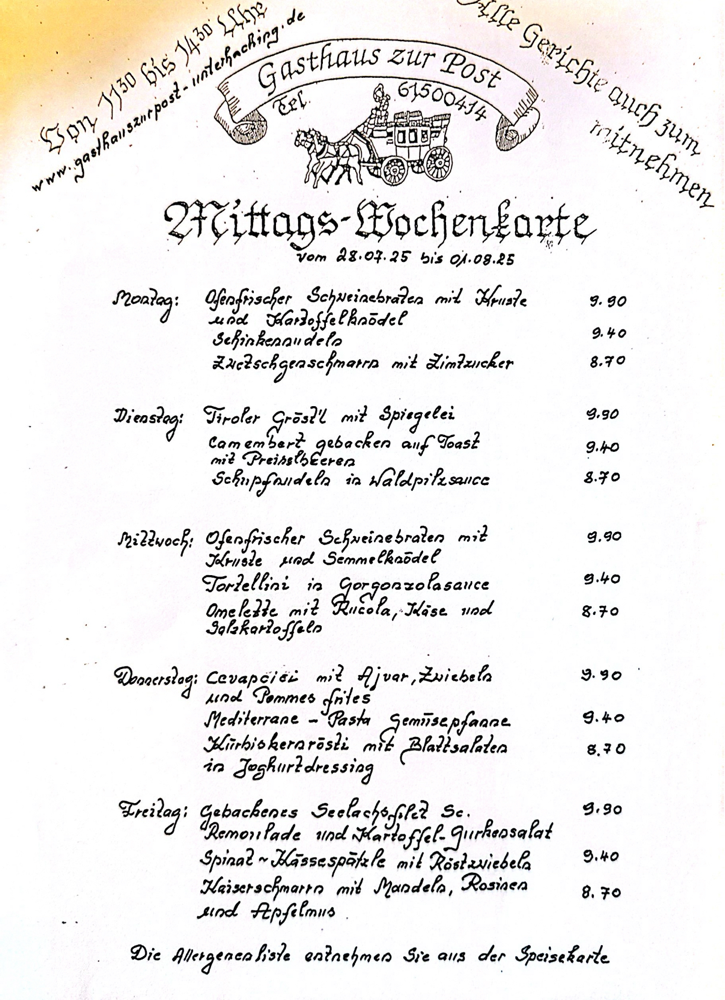 Von 11³⁰ bis 14³⁰ Uhr
www.gasthauszurpost-unterhaching.de
Gasthaus zur Post
Tel. 61500414
Alle Gerichte auch zum
mitnehmen
Mittags-Wochenkarte
vom 28.07.25 bis 01.08.25
Montag: Ofenfrischer Schweinebraten mit Kruste 9.90
und Kartoffelknödel
Schinkennudeln 9.40
Zwetschgenschmarrn mit Zimtzucker 8.70
Dienstag: Tiroler Gröst'l mit Spiegelei 9.90
Camembert gebacken auf Toast 9.40
mit Preiselbeeren
Schupfnudeln in Waldpilzsauce 8.70
Mittwoch: Ofenfrischer Schweinebraten mit 9.90
Kruste und Semmelknödel
Tortellini in Gorgonzolasauce 9.40
Omelette mit Rucola, Käse und 8.70
Salzkartoffeln
Donnerstag: Cevapcici mit Ajvar, Zwiebeln 9.90
und Pommes frites
Mediterrane - Pasta Gemüsepfanne 9.40
Kürbiskernrösti mit Blattsalaten 8.70
in Joghurtdressing
Freitag: Gebackenes Seelachsfilet Sc. 9.90
Remoulade und Kartoffel-Gurkensalat
Spinat ~ Kässespätzle mit Röstzwiebeln 9.40
Kaiserschmarrn mit Mandeln, Rosinen 8.70
und Apfelmus
Die Allergenenliste entnehmen Sie aus der Speisekarte